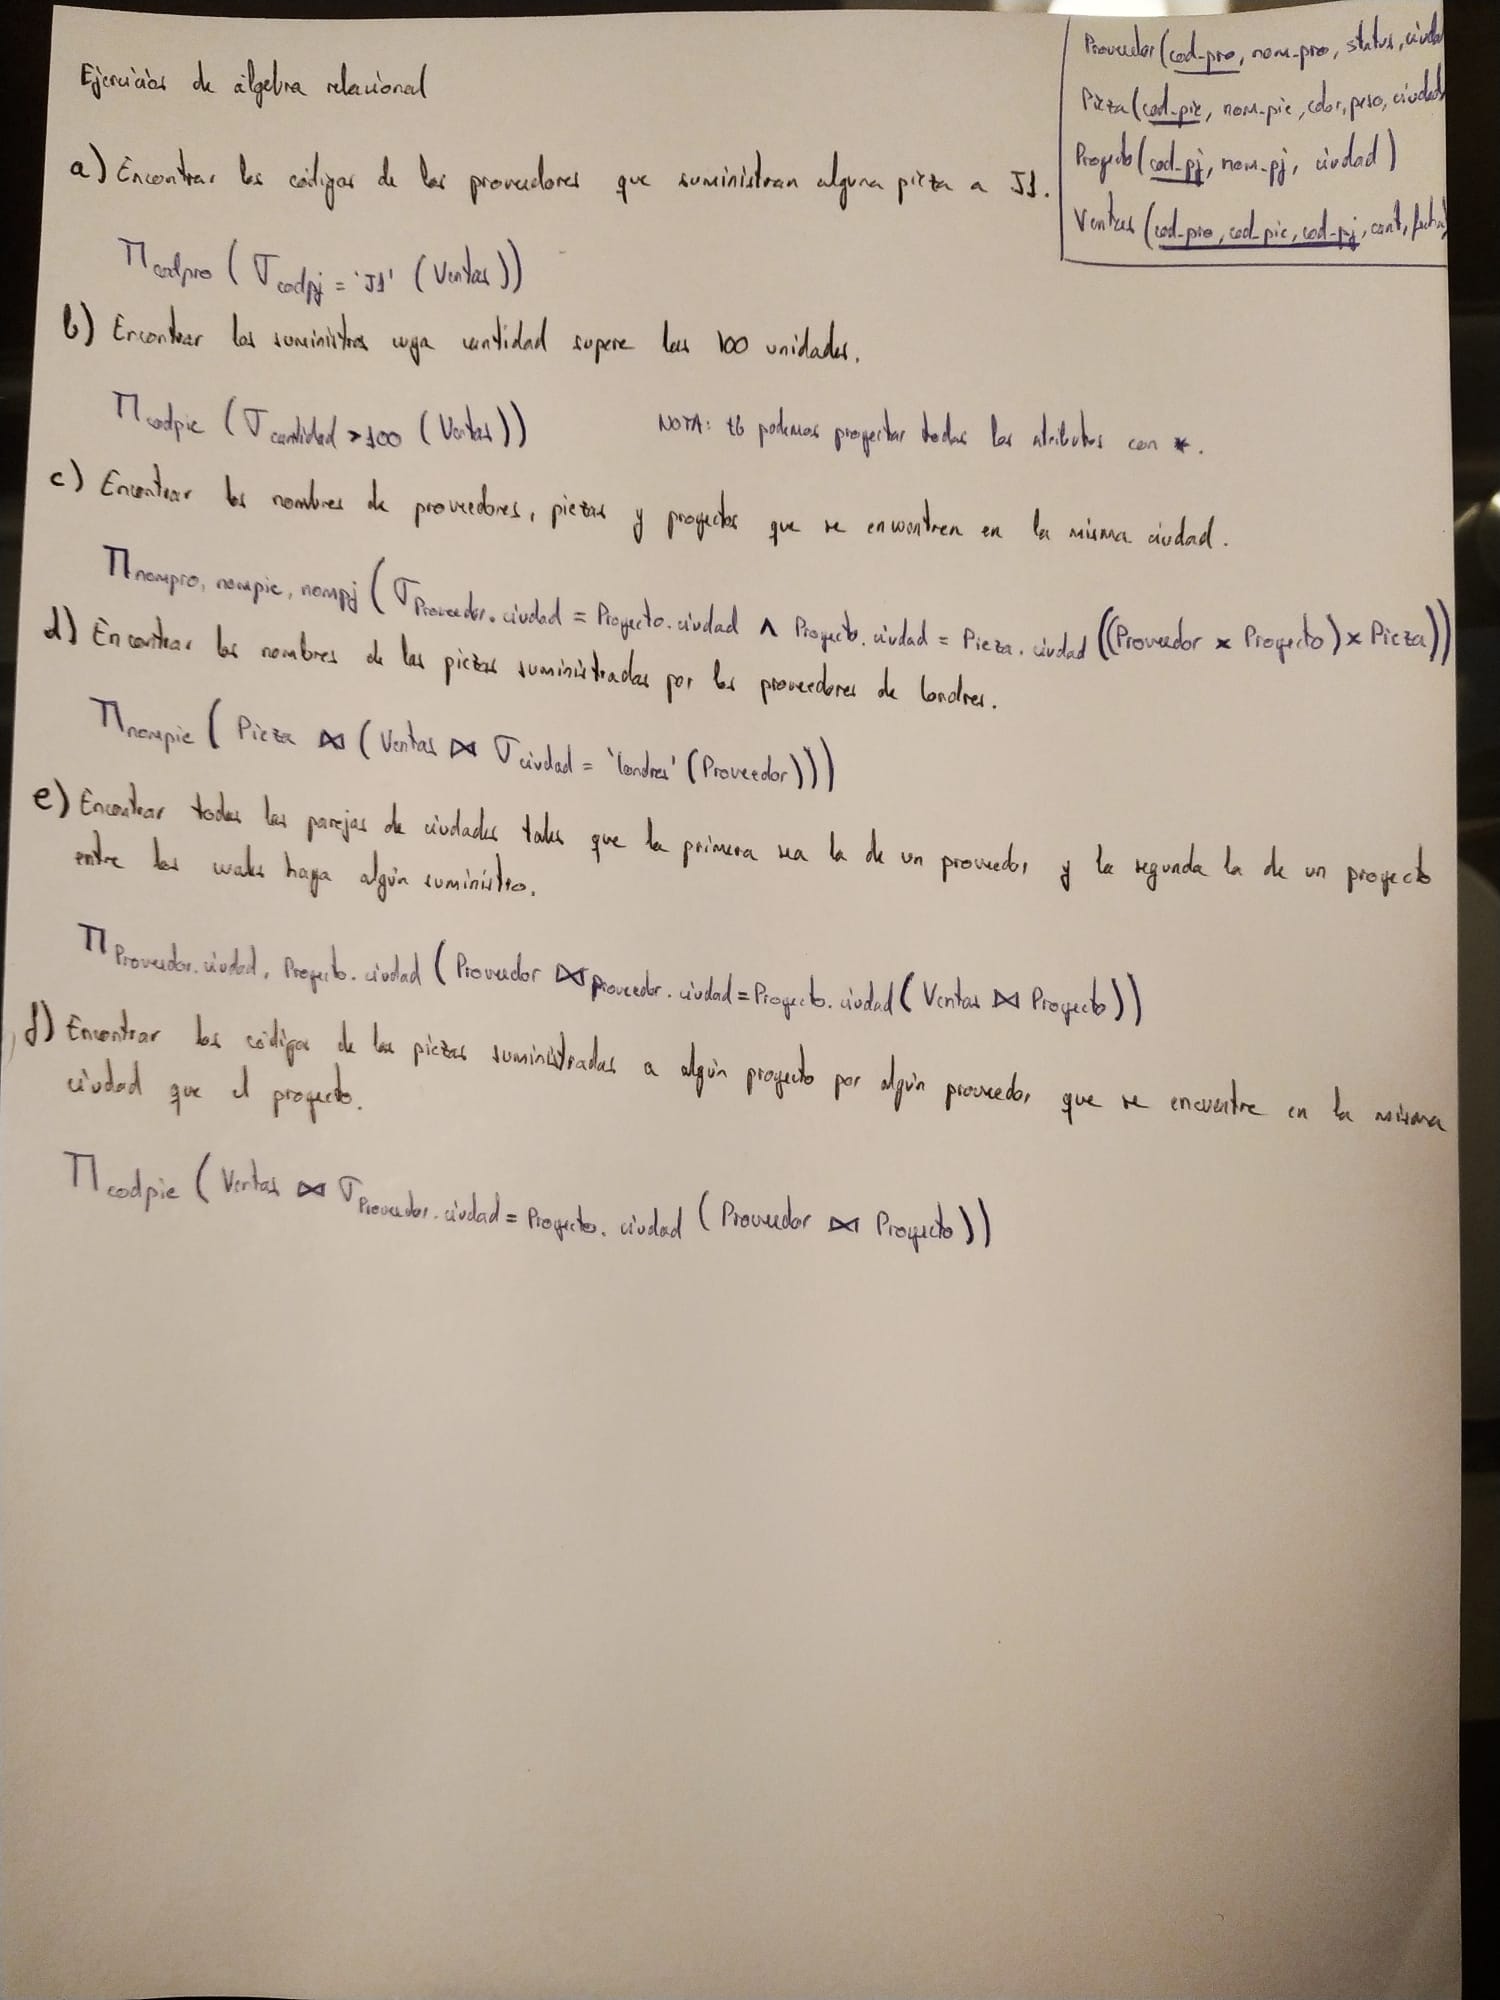 Proveedor (cod-pro, nom-pro, status, ciudad
Pieza (cod-pie, nom-pie, color, peso, ciudad
Proyecto (cod-pj, nom-pj, ciudad)
Ventas (cod-pro, cod-pie, cod-pj, cant, fecha)
Ejercicios de álgebra relacional
a) Encontrar los códigos de los proveedores que suministran alguna pieza a J1.
π codpro ( σ codpj = 'J1' (Ventas))
b) Encontrar los suministros cuya cantidad supere las 100 unidades.
π codpie ( σ cantidad > 100 (Ventas))
NOTA: tb podemos proyectar todos los atributos con *.
c) Encontrar los nombres de proveedores, piezas y proyectos que se encuentren en la misma ciudad.
π nompro, nompie, nompj ( σ Proveedor.ciudad = Proyecto.ciudad ∧ Proyecto.ciudad = Pieza.ciudad ((Proveedor × Proyecto) × Pieza))
d) Encontrar los nombres de las piezas suministradas por los proveedores de londres.
π nompie ( Pieza ⋈ (Ventas ⋈ σ ciudad = 'londres' (Proveedor)))
e) Encontrar todas las parejas de ciudades tales que la primera sea la de un proveedor y la segunda la de un proyecto
entre los cuales haya algún suministro.
π Proveedor.ciudad, Proyecto.ciudad ( Proveedor ⋈ Proveedor.ciudad = Proyecto.ciudad ( Ventas ⋈ Proyecto))
f) Encontrar los códigos de las piezas suministradas a algún proyecto por algún proveedor que se encuentre en la misma
ciudad que el proyecto.
π codpie ( Ventas ⋈ σ Proveedor.ciudad = Proyecto.ciudad ( Proveedor ⋈ Proyecto))